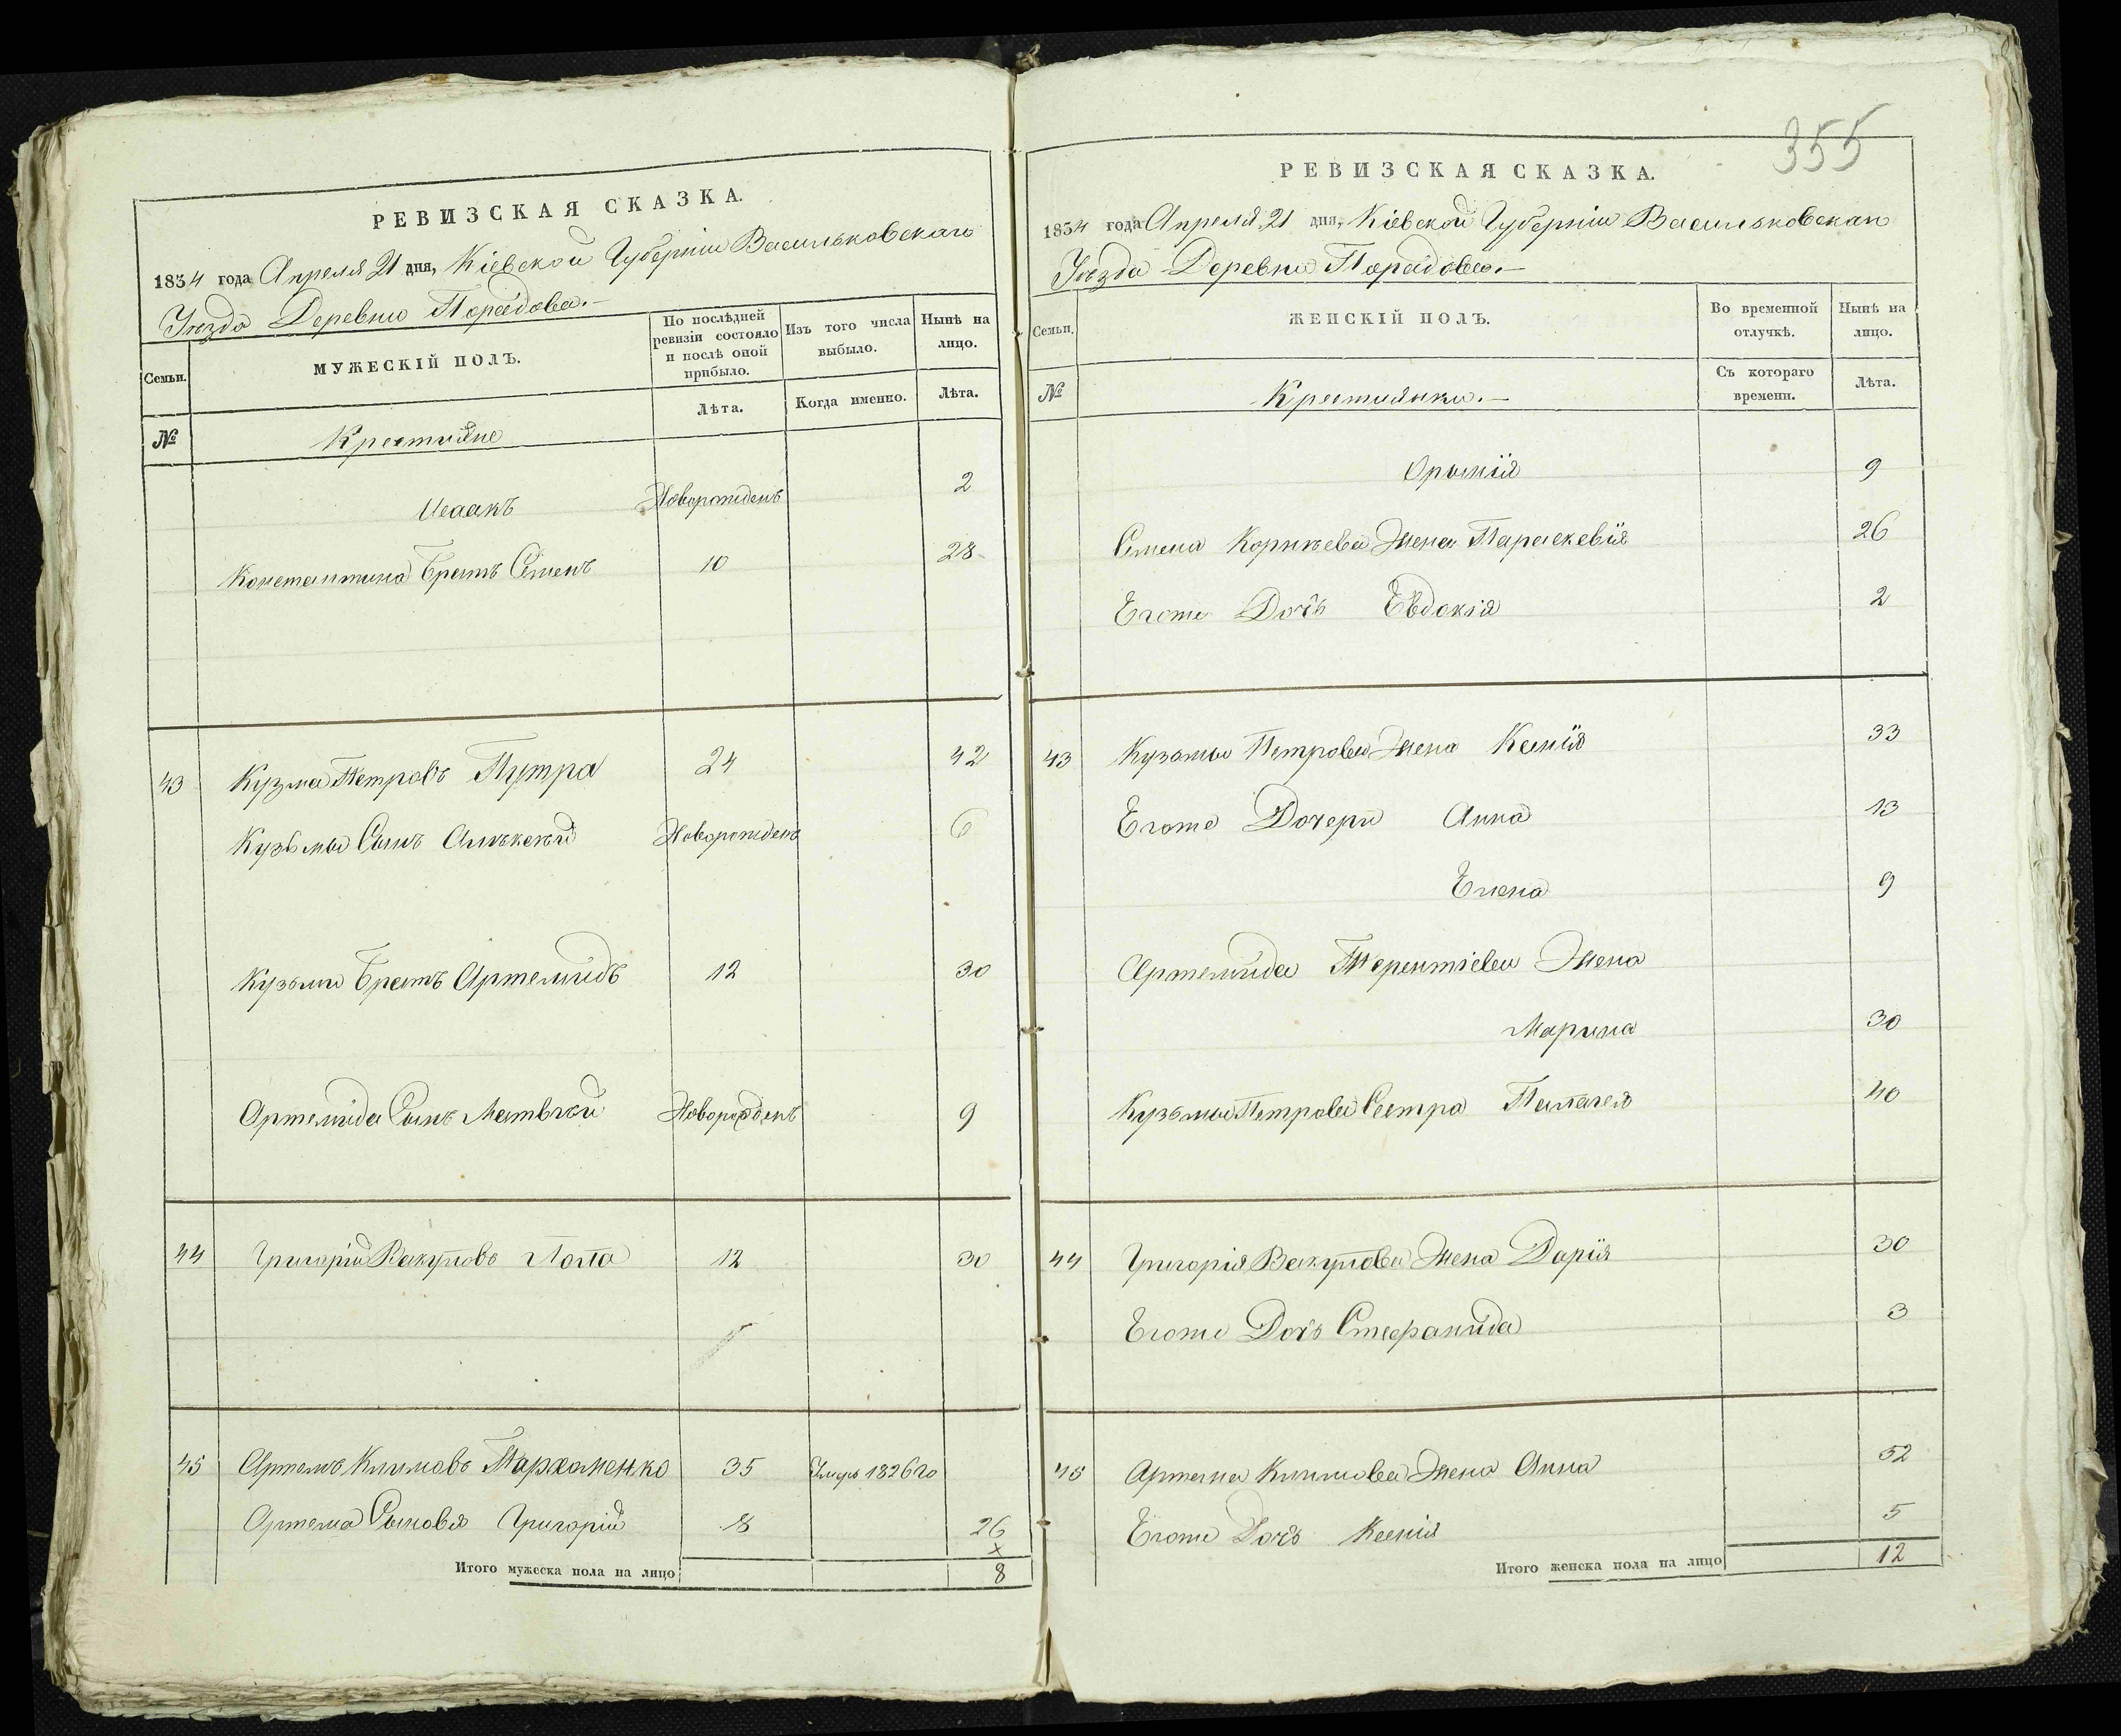 РЕВИЗСКАЯ СКАЗКА.
1834 года Апреля 21 дня, Кіевской Губерніи Васильковскаго
Уѣзда Деревни Парадова.-
Семьи.
МУЖЕСКІЙ ПОЛЪ.
По послѣдней ревизіи состояло и послѣ оной прибыло.
Изъ того числа выбыло.
Нынѣ на лицо.
Лѣта.
Когда именно.
Лѣта.
№
Крестияне
Исаакъ Новорожденъ 2
Константина Братъ Сѣменъ 10 28
43 Кузма Петровъ Путра 24 42
Кузьмы Сынъ Новорожденъ 6
Кузьмы Братъ Артемидъ 12 30
Артемида Сынъ Матвѣй Новорожденъ 9
44 Григорій Вакуловъ 12 30
45 Артемъ Климовъ Пархоменко 35 Умеръ 1826го
Артема Сыновя Григорій 8 26
х
Итого мужеска пола на лицо 8
355
РЕВИЗСКАЯ СКАЗКА.
1834 года Апреля 21 дня, Кіевской Губерніи Васильковскаго
Уѣзда Деревни Парадова.-
Семьи.
ЖЕНСКІЙ ПОЛЪ.
Во временной отлучкѣ.
Нынѣ на лицо.
№
Крестиянки.-
Съ котораго времени.
Лѣта.
Орынія 9
Семена Корнѣева Жена Параскевія 26
Егоже Дочь Евдокія 2
43 Кузьмы Петрова Жена Ксенія 33
Егоже Дочери Анна 13
Елена 9
Артемида Терентіева Жена
Марина 30
Кузьмы Петрова Сестра Палагея 40
44 Григорія Вакулова Жена Дарія 30
Егоже Дочь Стефанида 3
45 Артема Климова Жена Анна 52
Егоже Дочь Ксенія 5
Итого женска пола на лицо 12